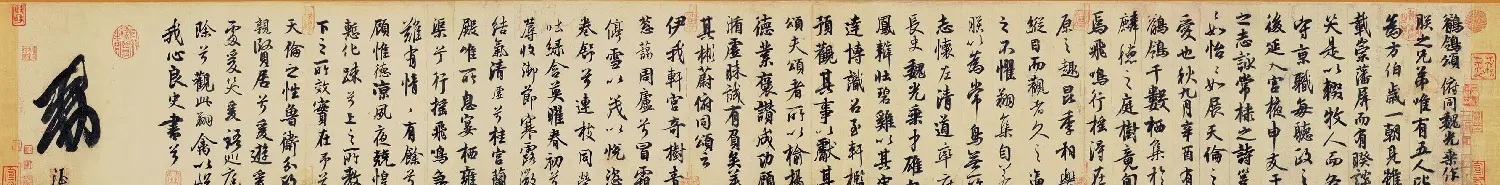 鶺鴒頌 俯同魏光乘作
朕之兄弟唯有五人比
為方伯歲一朝見雖
載崇藩屏而有睽談
笑是以輟牧人而各
守京職每聽政之
後延入宮掖申友于
之志詠棠棣之詩邕
邕如怡怡如展天倫之
愛也秋九月辛酉有
鶺鴒千數栖集於
麟德之庭樹竟旬
焉飛鳴行搖得在
原之趣昆季相樂
縱目而觀者久之逼
之不懼翔集自若
朕以為常鳥無所
志懷左清道率府
長史魏光乘才雄白
鳳辯壯碧雞以其宏
達博識召至軒檻
預觀其事以獻其
頌夫頌者所以揄揚
德業褒讚成功顧
循虛昧誠有負矣美
其彬蔚俯同頌云
伊我軒宮奇樹青
葱藹周廬兮冒霜
停雪以茂以悅恣
卷舒兮連枝同榮
吐綠含英曜春初兮
蓐收御節寒露微
結氣清虛兮桂宮蘭
殿唯所息宴栖雍
渠兮行搖飛鳴急
難有情情有餘兮
顧惟德涼夙夜兢惶
慙化疎兮上之所教
下之所效實在予兮
天倫之性魯衛分政
親賢居兮爰遊爰
處爰笑爰語巡庭
除兮觀此翔禽以悅
我心良史書兮
勅